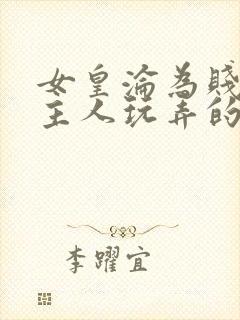 女皇淪為賤
主人玩弄的
李躍宜